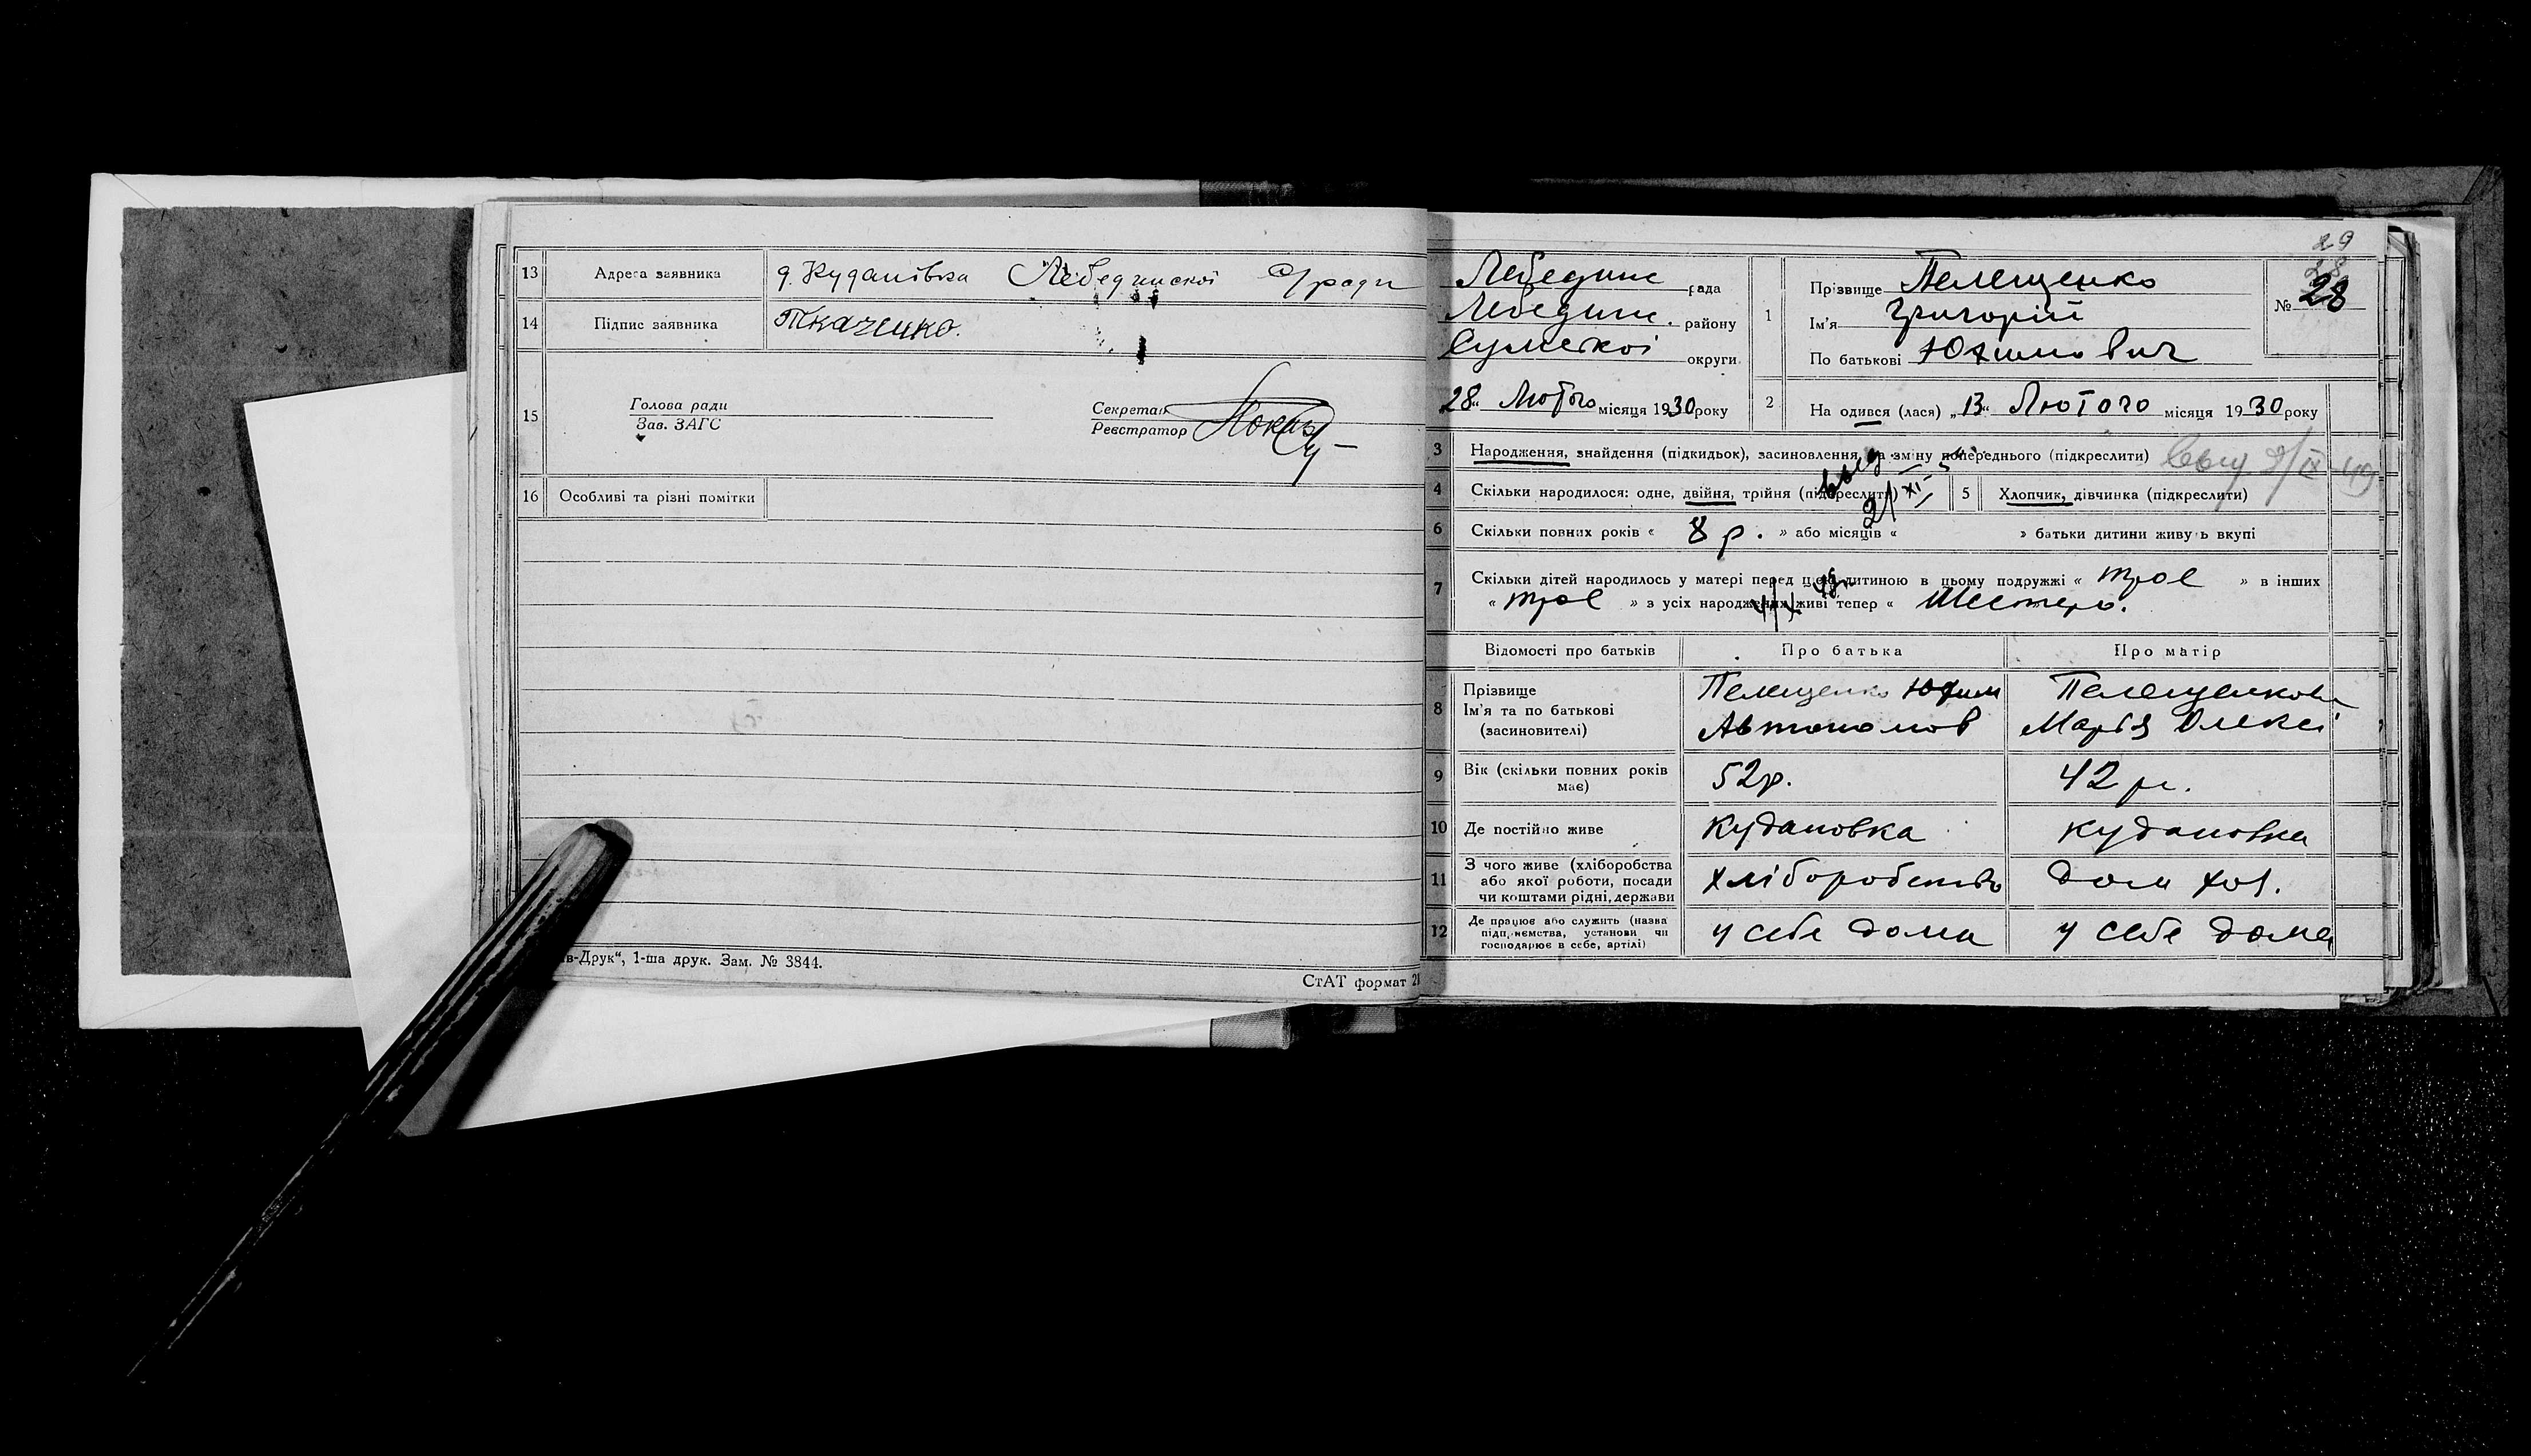 13 Адреса заявника д. Кудановка Лебединской с/ради
14 Підпис заявника Ткаченко.
15 Голова ради
Зав. ЗАГС
Секретар
Реєстратор
16 Особливі та різні помітки
в-Друк", 1-ша друк. Зам. № 3844.
СтАТ формат 21
29
28
№ 28
Лебедин рада
Лебедин. району
Сумскої округи
28" Лютого місяця 1930 року
1 Прізвище Пелещенко
Ім'я Григорій
По батькові Юхимович
2 На одився (лася) „13" Лютого місяця 1930 року
3 Народження, знайдення (підкидьок), засиновлення, на зміну попереднього (підкреслити) выд 9/IX 49
4 Скільки народилося: одне, двійня, трійня (підкреслити)
выд.
21/XI
5 Хлопчик, дівчинка (підкреслити)
6 Скільки повних років « 8 р. » або місяців « » батьки дитини живуь вкупі
7 Скільки дітей народилось у матері перед цією дитиною в цьому подружжі « троє » в інших
« троє » з усіх народжених живі тепер « Шестеро.
Відомості про батьків Про батька Про матір
8 Прізвище
Ім'я та по батькові
(засиновителі)
Пелещенко Юхим
Автономов
Пелещенкова
Марія Олексі
9 Вік (скільки повних років
має)
52р.
42 р.
10 Де постійно живе Кудановка Кудановка
11 З чого живе (хліборобства
або якої роботи, посади
чи коштами рідні, держави
хліборобство
дом хоз.
12 Де працює або служить (назва
підприємства, установи чи
господарює в себе, артілі)
у себе дома
у себе дома